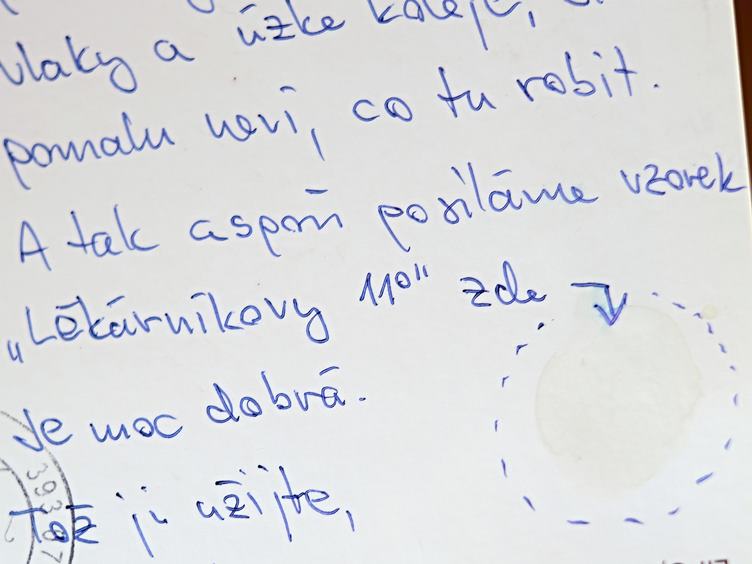 vlaky a úzke koleje,
pomalu neví, co tu robit.
A tak aspoň posíláme vzorek
„Lékárníkovy 11°" zde
Je moc dobrá.
Tož ji užijte,